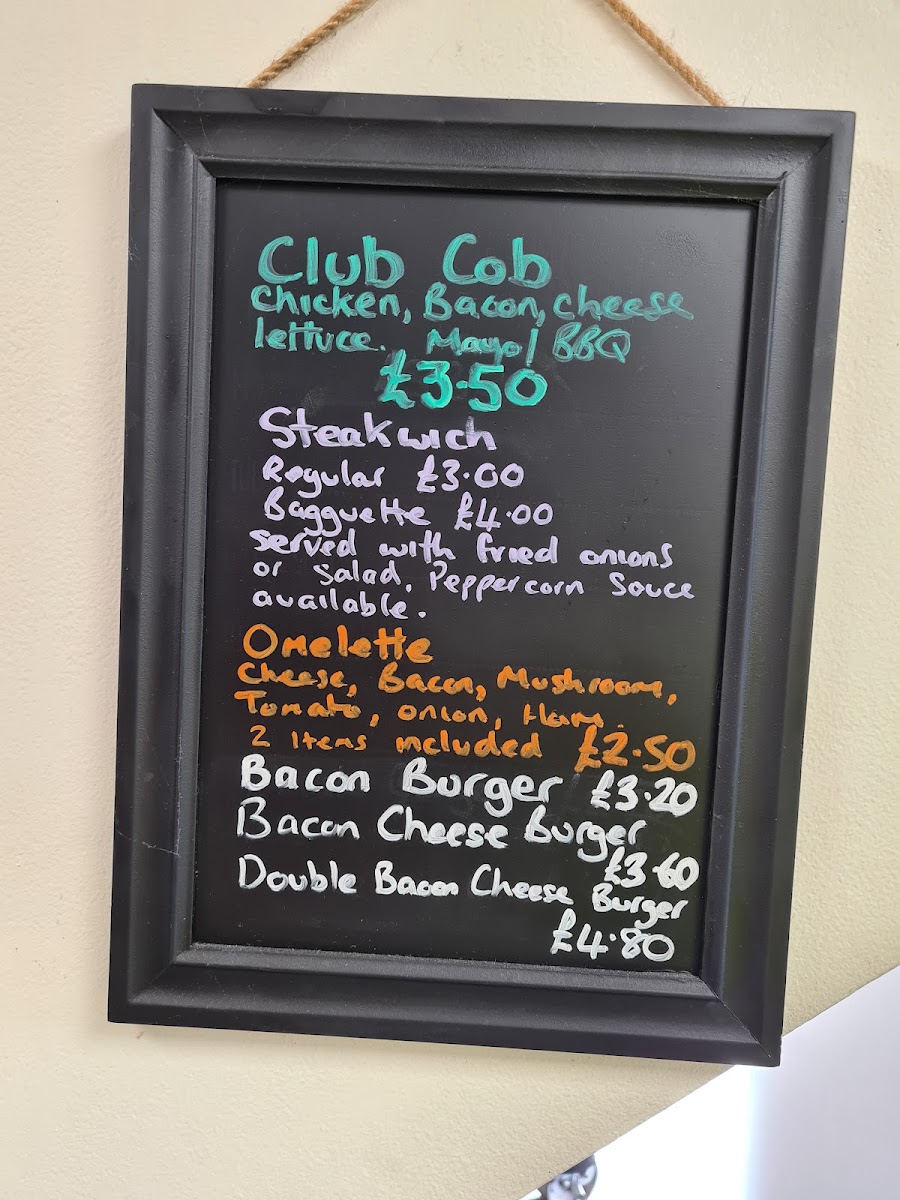 Club Cob
Chicken, Bacon, Cheese
lettuce. Mayo/ BBQ
£3.50
Steakwich
Regular £3.00
Bagguette £4.00
served with fried onions
or salad. Peppercorn Sauce
available.
Omelette
Cheese, Bacon, Mushroom,
Tomato, onion, Ham.
2 items included £2.50
Bacon Burger £3.20
Bacon Cheese Burger
£3.60
Double Bacon Cheese Burger
£4.80